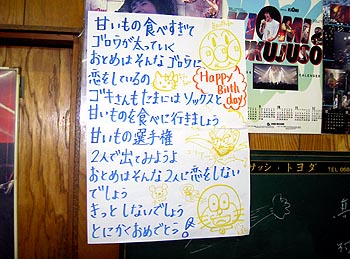 甘いもの食べすぎて
ゴロウが太っていく
おとめはそんなゴロウに
恋をしているの
Happy
Birth
day
ゴキさんもたまにはソックスと
甘いものを食べに行きましょう
甘いもの選手権
2人で出てみようよ
おとめはそんな2人に恋をしない
でしょう
きっとしないでしょう
とにかくおめでとう
KUJUSO
CALENDER
サッシ・トヨダ
TEL 068